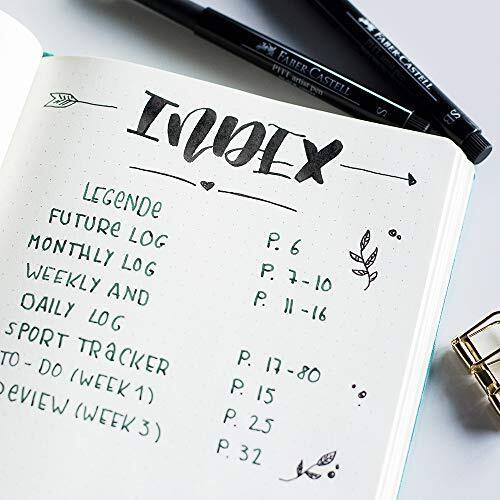 FABER-CASTELL
PITT artist pen
S
FABER-CASTELL
PITT artist pen
S
INDEX
LEGENDE P. 6
FUTURE LOG P. 7-10
MONTHLY LOG P. 11-16
WEEKLY AND
DAILY LOG P. 17-80
SPORT TRACKER P. 15
TO-DO (WEEK 1) P. 25
REVIEW (WEEK 3) P. 32